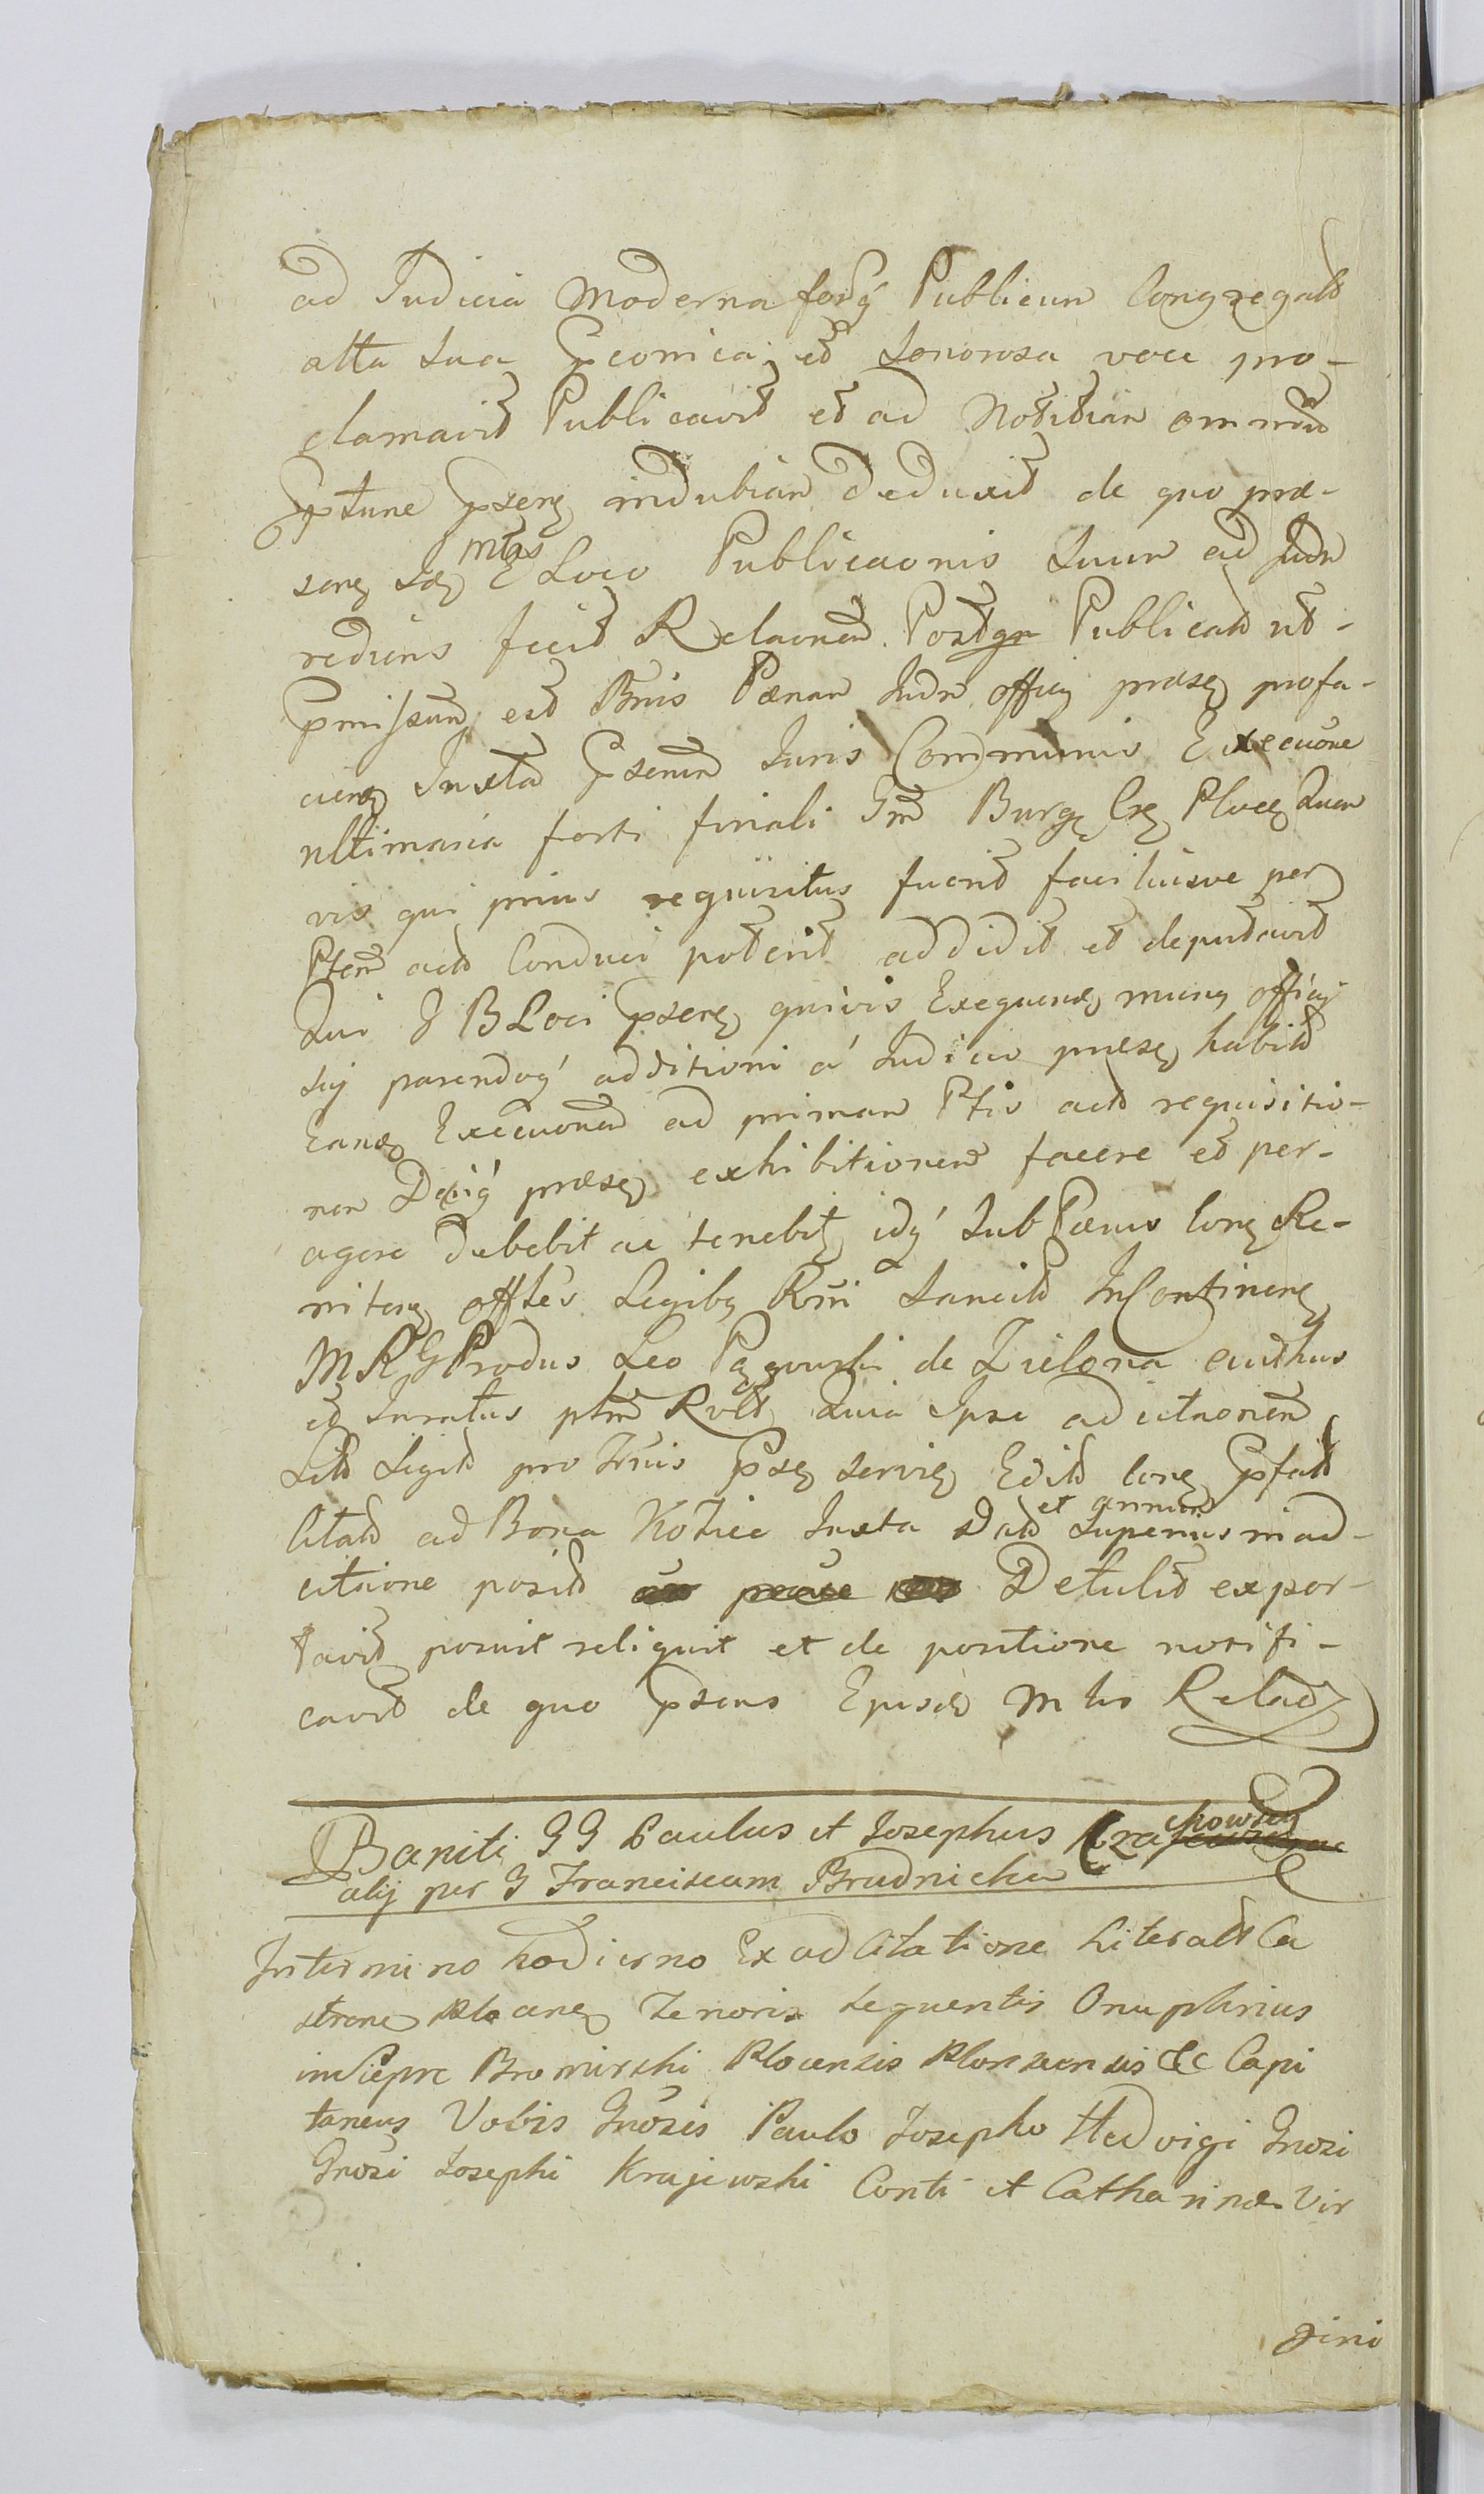 ad Judicia Moderna forq́ Publicum Congregat
alta sua Pconica et sonorosa voce pro-
clamavit Publicavit et ad Notitiam omnium
ptunc psen indubiam deduxit de quo præ-
sens Mtris Loco Publicaonis suum ad Judm
rediens fecit Relaonem. Postqm Publicat ut-
pmissum est Bnis Pænam Judm officij præse profa-
cien Juxta Psentm Juris Communis Execuone
ultimaria forti finali Gm Burg Cas Ploce quem
vis qui prius requisitus fuerit faciliusve per
Ptem act Conduci poterit addidit et deputavit
qui G B Loci psen quivis Exequens munus officij
sui parendoq́ additioni á Judicio præse habit
eans Execuonem ad primam Ptis act requisitio-
nem Deiq́ præse exhibitionem facere et per-
agere debebit ac tenebit idq́ sub Pænis Con Re-
niten offles Legibus Rni sancit In Continen
M R G Produs Leo Pągowski de Zielona authus
et Juratus ptm Rult quia Ipse adcitaonem
Litt Legit pro Tmis Pse servien Edit Con Pfat
Citat ad Bona Kozice Juxta Dat et annum superius in ad-
citaone posit Detulit expor-
tavit posuit reliquit et de positione notifi-
cavit de quo psens Ejusd Mtris Relaõ
Baniti GG Paulus et Josephus Krajewski chowscy
alij per G Franciscam Brudnicka
In termino hodierno Ex adcitatione Literali Ca
strane Plocane Tenoris sequentis Onuphrius
in Siepre Bromirski Plocensis Plonscensis &c Capi
taneus Vobis Gnosis Paulo Josepho Hedvigi Gnosi
Gnosi Josephi Krajewski Conti et Catharinæ Vir
gini